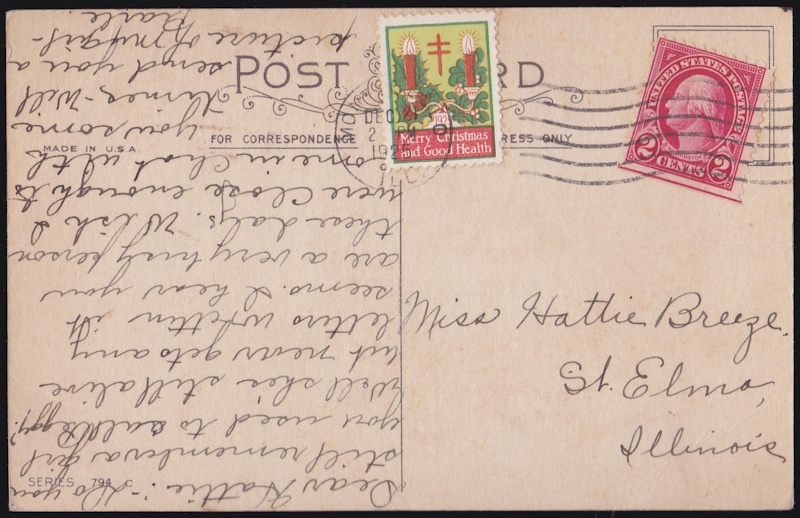 POST CARD
MADE IN U.S.A.
FOR CORRESPONDENCE
ADDRESS ONLY
Merry Christmas
and Good Health
DEC
2
192
ILL
UNITED STATES POSTAGE
2 CENTS 2
Miss Hattie Breeze.
St. Elmo,
Illinois
Dear Hattie:- Do you
still remember a girl
you used to call Peggy?
Well she's still alive
but never gets any
letters written it
seems. I hear you
are a very busy person
these days. Wish I
were close enough to
come in & chat with
you some
times. Will
send you a
picture of my girl-
Pearle.
SERIES 794 C